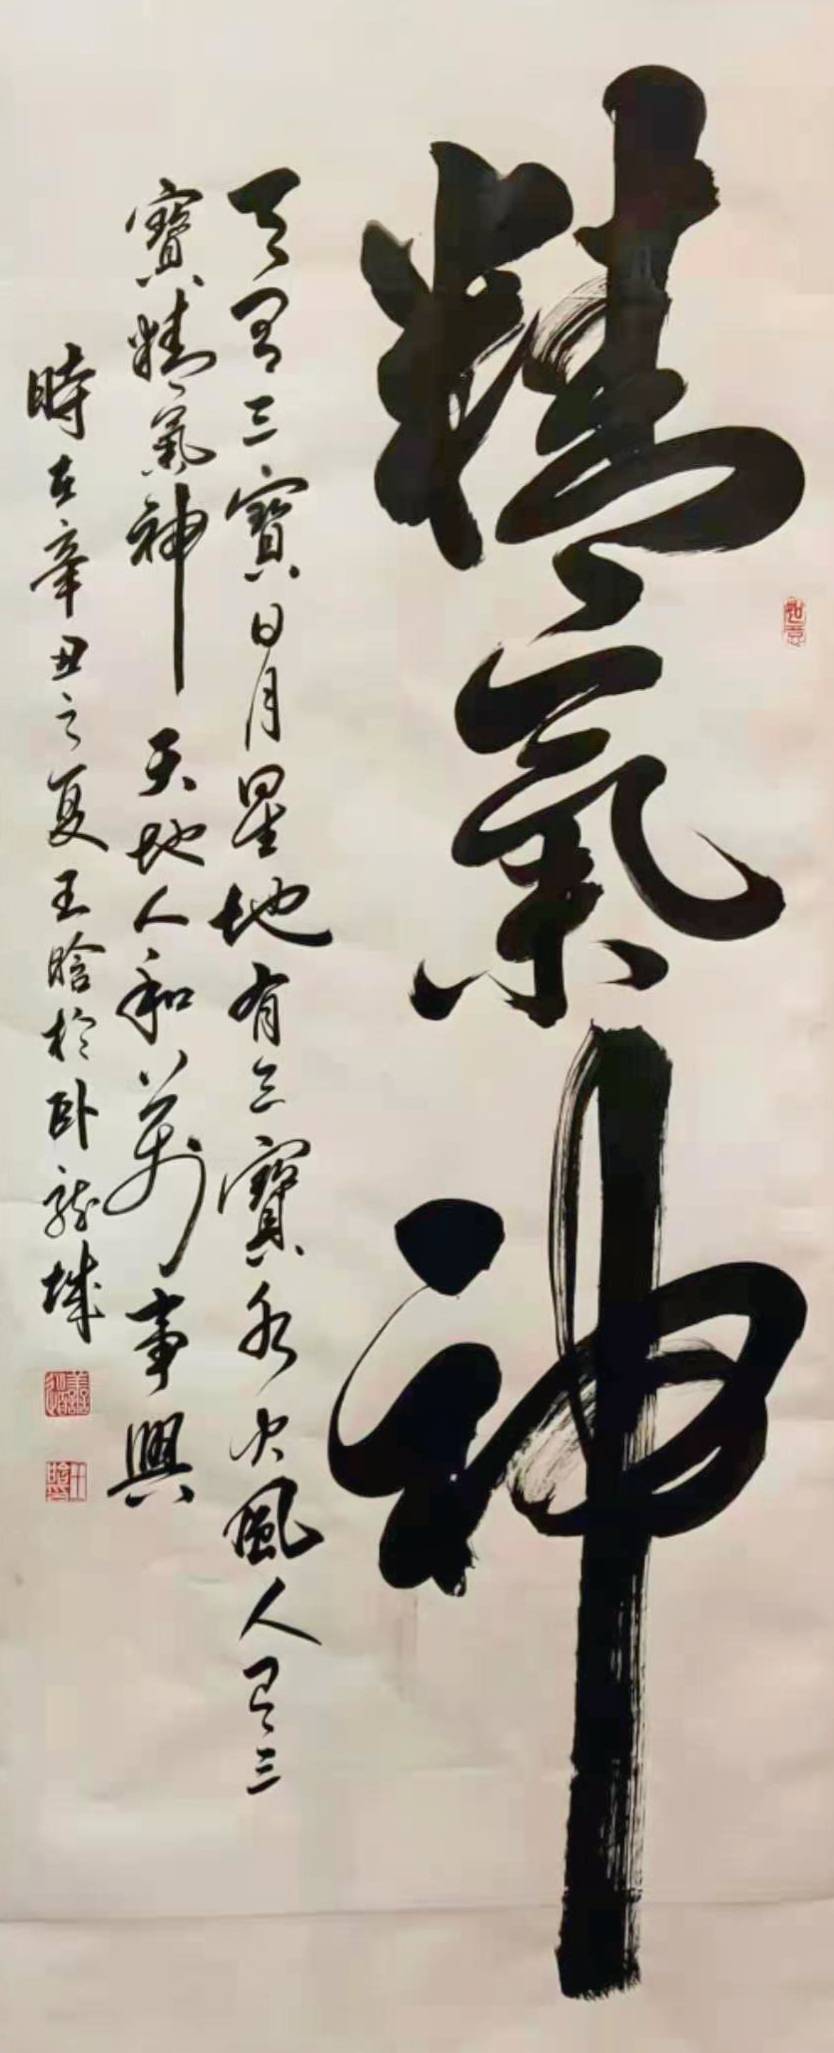 精氣神
天有三寶日月星地有三寶水火風人有三
寶精氣神天地人和萬事興
時在辛丑之夏王晗於卧龍城
如意
王晗